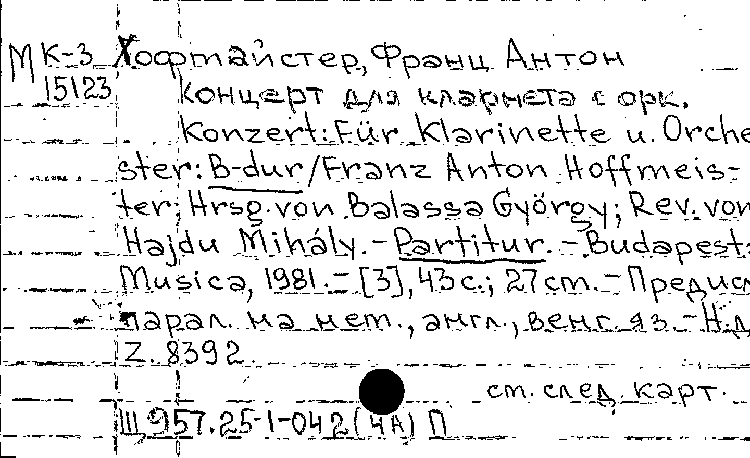 М К-3 Хофмайстер, Франц Антон
15123 Концерт для кларнета с орк.
Konzert: Für Klarinette u. Orche
ster: B-dur / Franz Anton Hoffmeis-
ter; Hrsg. von Balassa György; Rev. von
Hajdu Mihály. - Partitur. - Budapest:
Musica, 1981. - [3], 43 с.; 27 cm. - Предисл
парал. на нем., англ., венг. яз. - Н.д
Z. 8392.
ст. след. карт.
Ш 957.25-1-042(4А) П